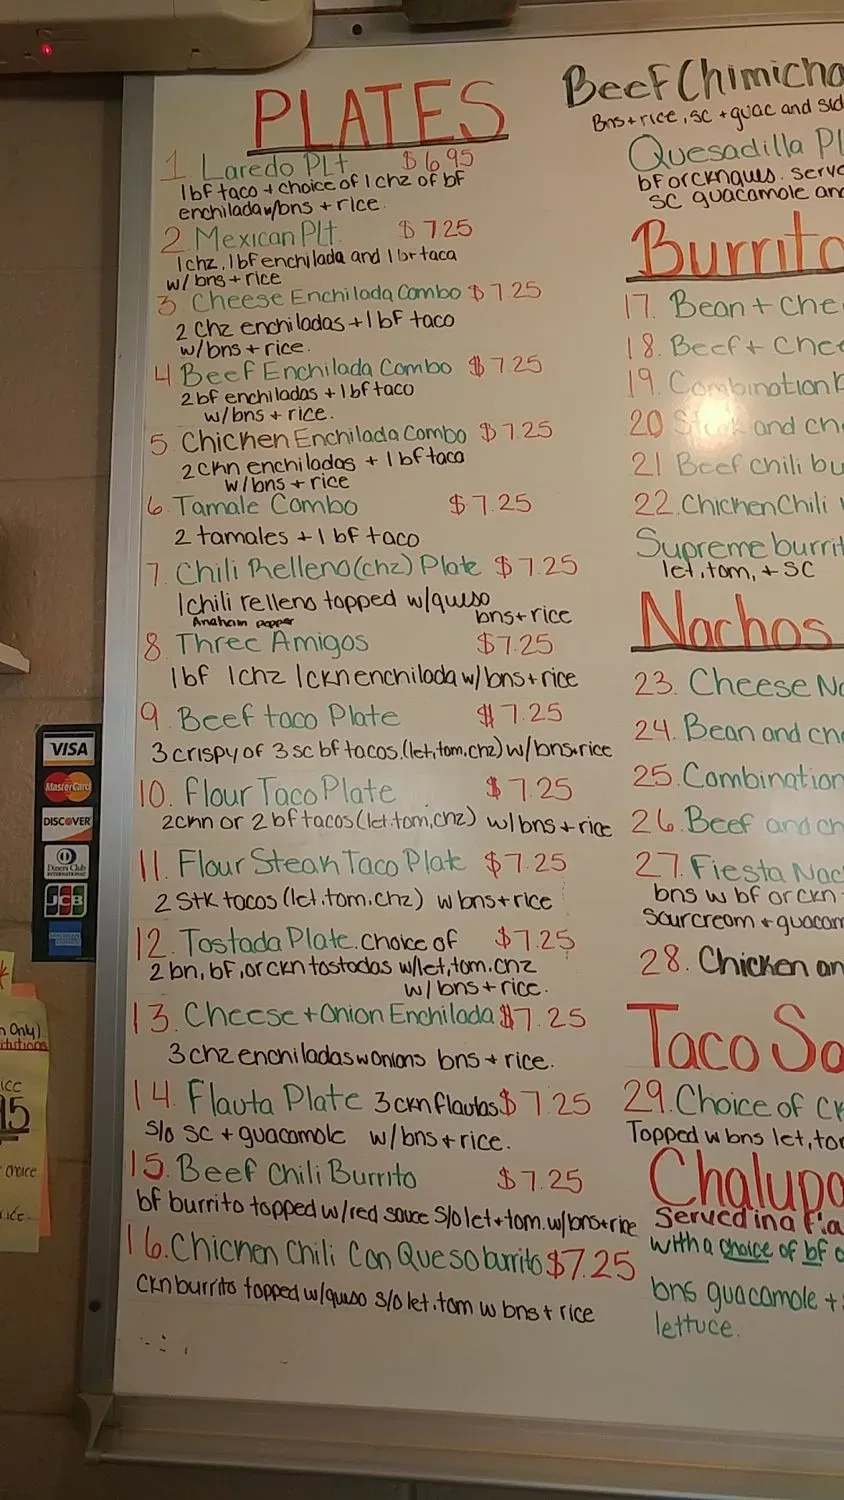 PLATES
1. Laredo Plt. $6.95
1 bf taco + choice of 1 chz of bf
enchilada w/bns + rice.
2 Mexican Plt. $7.25
1 chz, 1 bf enchilada and 1 bf taca
w/ bns + rice
3 Cheese Enchilada Combo $7.25
2 Chz enchiladas + 1 bf taco
w/bns + rice.
4 Beef Enchilada Combo $7.25
2 bf enchiladas + 1 bf taco
w/bns + rice.
5 Chicken Enchilada Combo $7.25
2 ckn enchiladas + 1 bf taco
w/bns + rice
6. Tamale Combo $7.25
2 tamales + 1 bf taco
7. Chili Relleno (chz) Plate $7.25
1 chili relleno topped w/queso
Anaheim pepper bns + rice
8 Three Amigos $7.25
1 bf 1 chz 1 ckn enchilada w/ bns + rice
9. Beef taco Plate $7.25
3 crispy of 3 sc bf tacos. (let, tom, chz) w/bns + rice
10. Flour Taco Plate $7.25
2 ckn or 2 bf tacos (let. tom, chz) w/ bns + rice
11. Flour Steak Taco Plate $7.25
2 Stk tacos (let, tom, chz) w bns + rice
12. Tostada Plate. choice of $7.25
2 bn, bf, or ckn tostadas w/let, tom. cnz
w/ bns + rice.
13. Cheese + Onion Enchilada $7.25
3 chz enchiladas w onions bns + rice.
14. Flauta Plate 3 ckn flautas $7.25
S/o SC + guacamole w/bns + rice.
15. Beef Chili Burrito $7.25
bf burrito topped w/red sauce S/o let + tom. w/bns + rice
16. Chicken Chili Con Queso burrito $7.25
Ckn burrito topped w/queso s/o let. tom w bns + rice
Beef Chimicha
Bns + rice, sc + guac and sid
Quesadilla Pl
bf or ckn ques. serve
sc guacamole and
Burrito
17. Bean + Che
18. Beef + Chee
19. Combination
20 and ch
21 Beef chili bu
22. Chicken Chili
Supreme burrit
let, tom, + SC
Nachos
23. Cheese Na
24. Bean and ch
25. Combination
26. Beef and ch
27. Fiesta Nac
bns w bf or ckn
Sour cream + guacam
28. Chicken an
Taco Sa
29. Choice of Ck
Topped w bns let, tom
Chalupa
Served in a fla
with a choice of bf o
bns guacamole +
lettuce.
VISA
MasterCard
DISCOVER
Diners Club
INTERNATIONAL
JCB
AMERICAN EXPRESS
n Only)
titutions
ice
15
choice